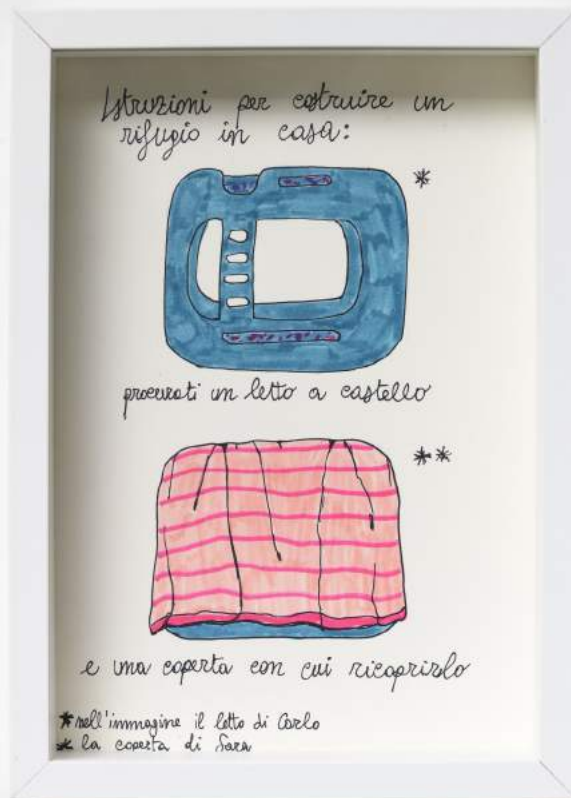 Istruzioni per costruire un
rifugio in casa:
*
procurati un letto a castello
**
e una coperta con cui ricoprirlo
* nell'immagine il letto di Carlo
* la coperta di Sara